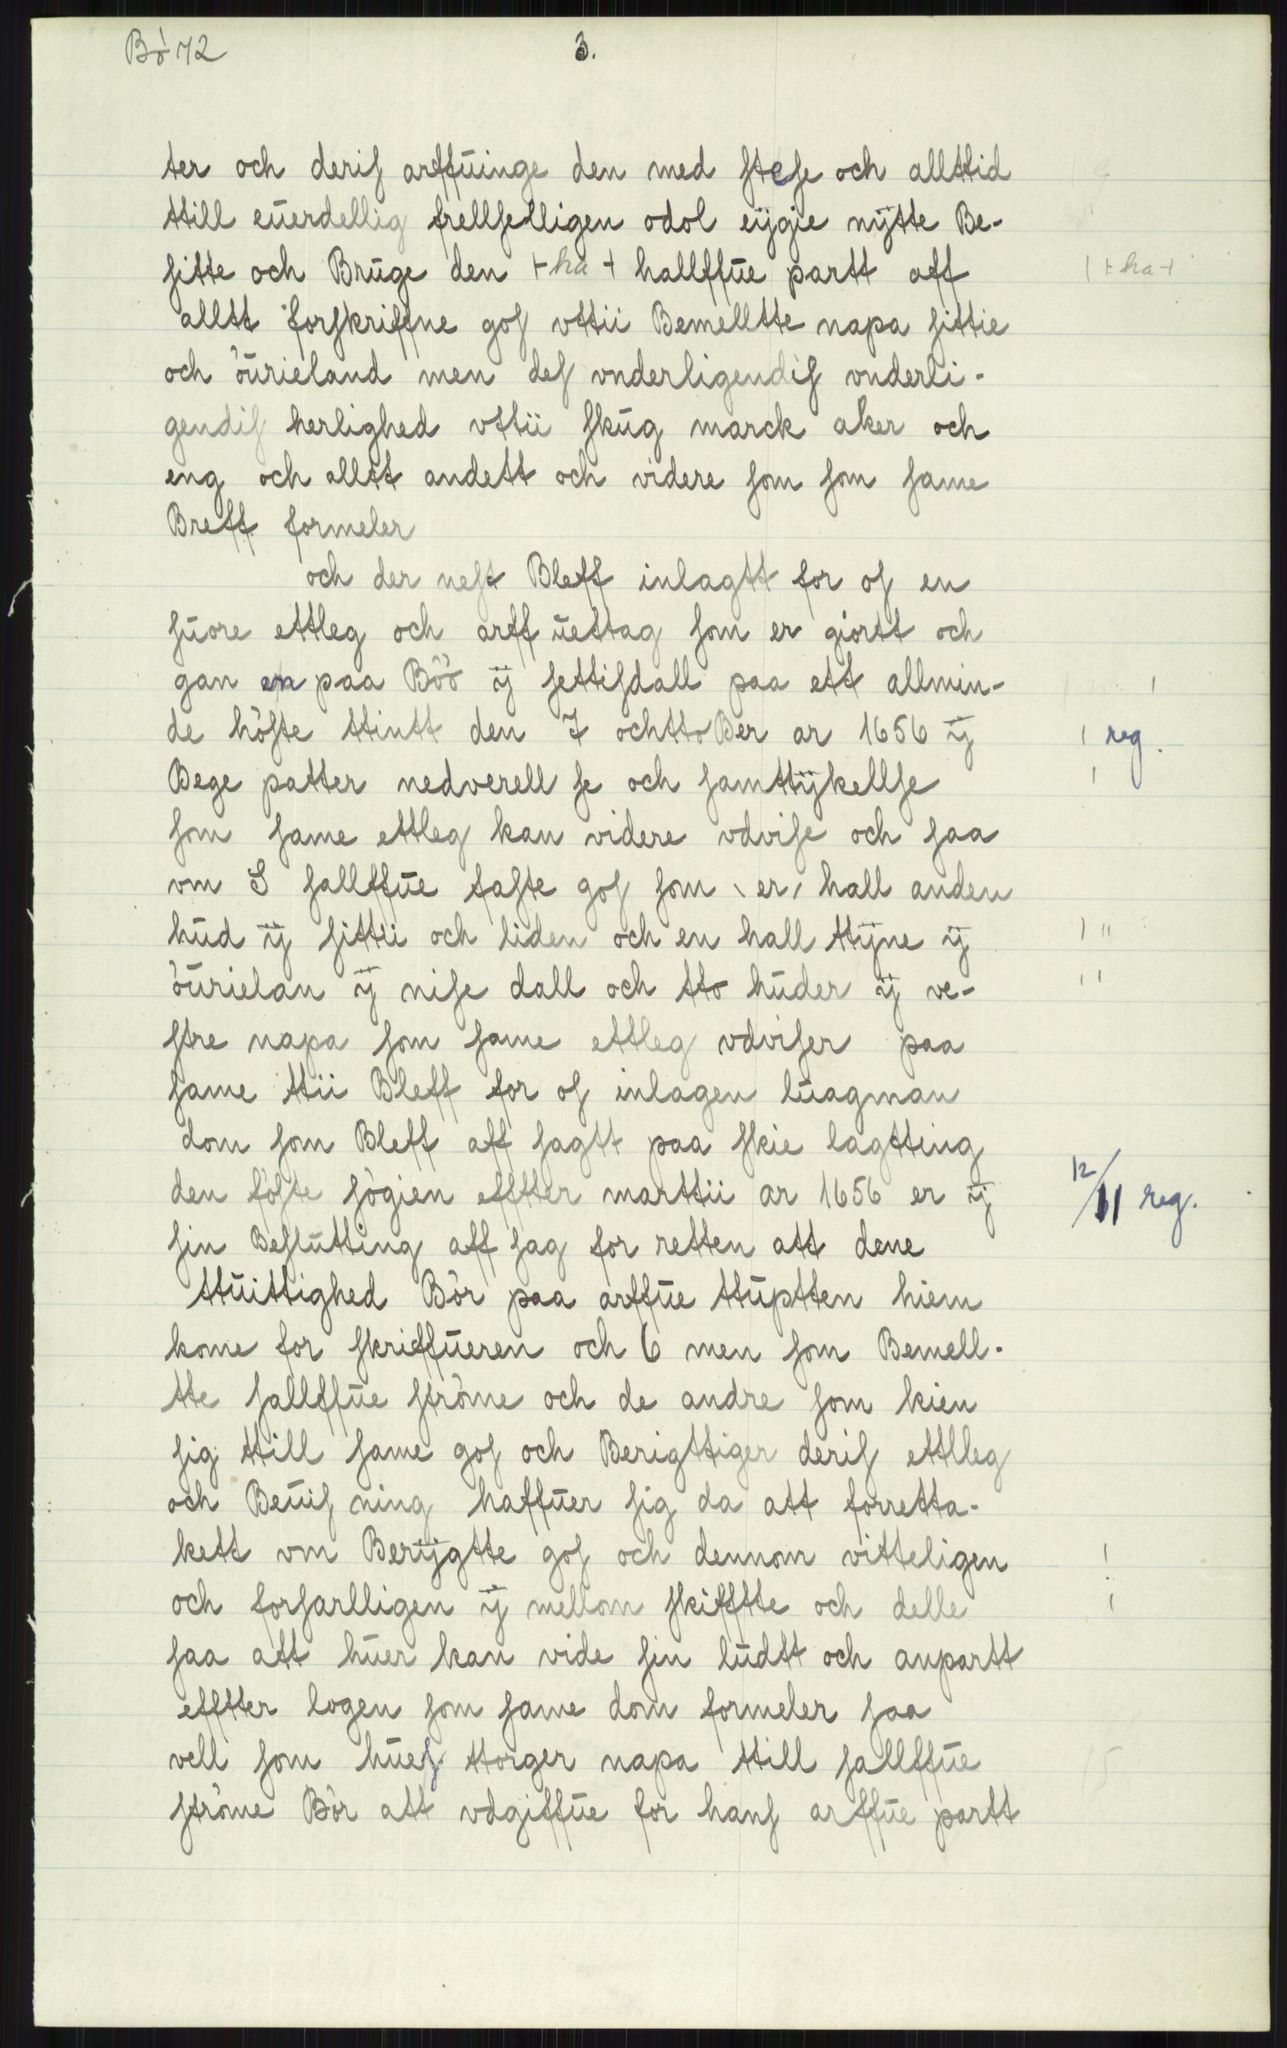 Bö 72
3.
ter och deriſ arffuinge den med ſteſe och allttid
ttill euerdellig frellſelligen odol eÿgie nÿtte Be-
ſitte och Brŭge den + ha + hallffŭe partt aff | + ha +
alltt forſkriffne goſ vttii Bemelltte napa ſittie
och öŭrieland men deſ vnderligendiſ vnderli-
gendiſ herlighed vttii ſkŭg marck aker och
eng och alltt andett och videre ſom ſom ſame
Breff formeler
och der neſt Bleff inlagtt for oſ en
ſŭore ettleg och arff ŭettag ſom er giortt och
gan en paa Böö ÿ ſettiſdall paa ett allmin- |
de höſte ttintt den 7 ochttoBer ar 1656 ÿ | reg.
Bege patter nedverell ſe och ſamttÿkellſe |
ſom ſame ettleg kan videre vdviſe och ſaa
vm S ſallffŭe faſte goſ ſom \ er / hall anden
hŭd ÿ ſittii och liden och en hall ttÿne ÿ | "
öŭrielan ÿ niſe dall och tto hŭder ÿ ve- ' '
ſtre napa ſom ſame ettleg vdviſer paa
ſame ttii Bleff for oſ inlagen lŭagman
dom ſom Bleff aff ſagtt paa ſkie lagtting
den föſte ſögien effter marttii ar 1656 er ÿ 12/11 reg.
ſin Beſlŭtting aff ſag for retten att dene
ttŭittighed Bör paa arffŭe ttŭptten hiem
kome for ſkriffŭeren och 6 men ſom Bemell-
tte ſallffŭe ſtröme och de andre ſom kien
ſig ttill ſame goſ och Berigttiger deriſ ettleg
och Beŭiſ ning haffŭer ſig da att forretta-
kett vm Berÿgtte goſ och dennom vitteligen !
och forſarlligen ÿ mellom ſkiffte och delle |
ſaa att hŭer kan vide ſin lŭdtt och anpartt
effter logen ſom ſame dom formeler ſaa
vell ſom hŭeſ ttorger napa ttill ſallffŭe
ſtröme Bör att vdgiffŭe for hanſ arffŭe partt